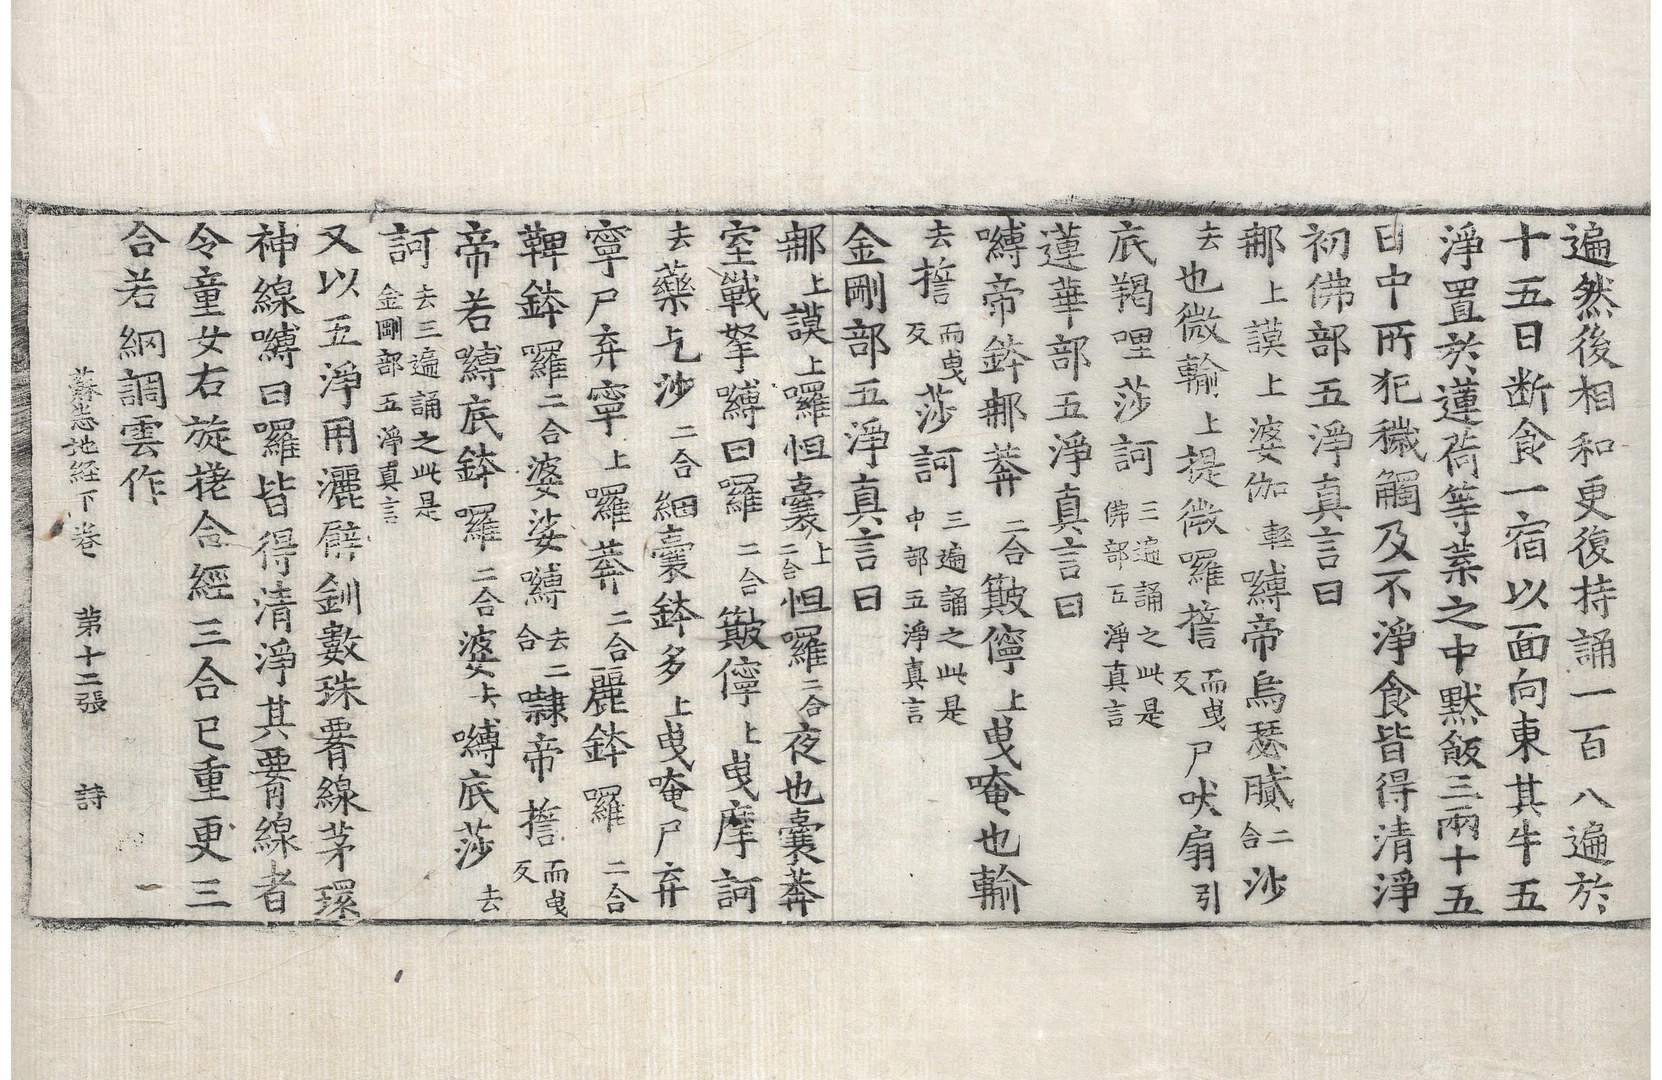 遍然後相和更復持誦一百八遍於
十五日断食一宿以面向東其牛五
淨置於蓮荷等葉之中黙飯三兩十五
日中所犯穢觸及不淨食皆得清淨
初佛部五淨真言曰
那上謨上婆伽輕嚩帝烏瑟膩二合沙
去也微輸上提微囉擔而曳反尸吠扇引
底羯哩莎訶三遍誦之此是佛部五淨真言
蓮華部五淨真言曰
嚩帝鉢那莾二合皽儜上曳唵也輸
去擔而曳反莎訶三遍誦之此是中部五淨真言
金剛部五淨真言曰
那上謨上囉怛囊上二合怛囉二合夜也囊莾
室戰拏嚩曰囉二合皽儜上曳摩訶
去藥乞沙二合細囊鉢多上曳唵尸弃
寧尸弃寧上囉莾二合麗鉢囉二合
鞞鉢囉二合婆娑嚩去二合隸帝擔而曳反
帝若嚩底鉢囉二合婆去嚩底莎去
訶去三遍誦之此是金剛部五淨真言
又以五淨用灑臂釧數珠䙅線茅環
神線嚩曰囉皆得清淨其䙅線者
令童女右旋搓合經三合已重更三
合若網調雲作
蘇悉地経下卷 第十二張 詩